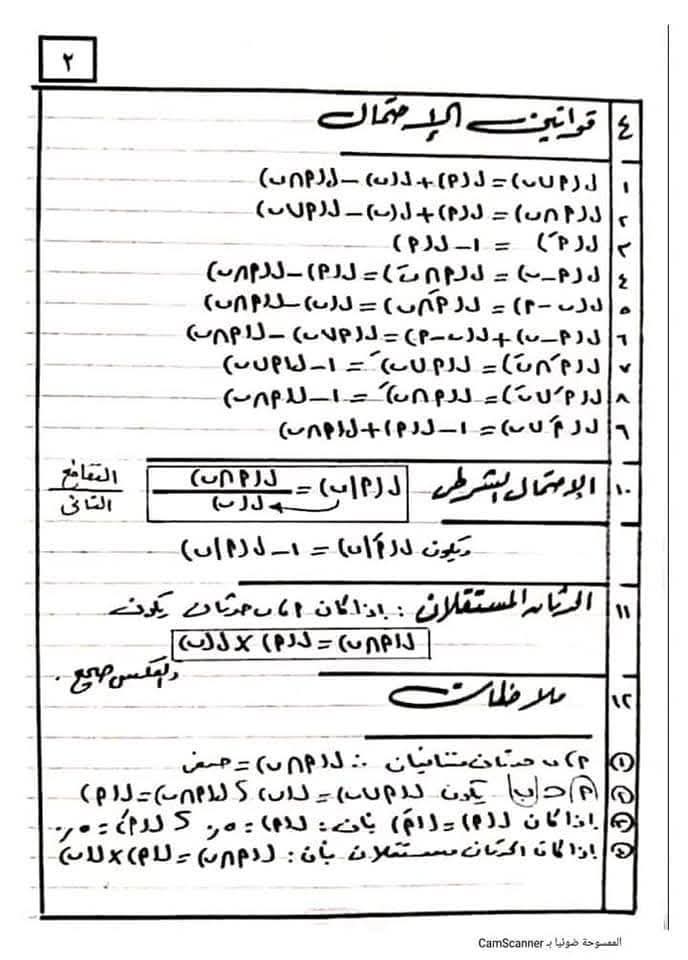 ٢
٤ قوانين الإحتمال
١ ل(P∪ب) = ل(P) + ل(ب) - ل(P∩ب)
٢ ل(P∩ب) = ل(P) + ل(ب) - ل(P∪ب)
٣ ل(Ṕ) = ١ - ل(P)
٤ ل(P-ب) = ل(P∩ب́) = ل(P) - ل(P∩ب)
٥ ل(ب-P) = ل(Ṕ∩ب) = ل(ب) - ل(P∩ب)
٦ ل(P-ب) + ل(ب-P) = ل(P∪ب) - ل(P∩ب)
٧ ل(Ṕ∩ب́) = ل(P∪ب)́ = ١ - ل(P∪ب)
٨ ل(Ṕ∪ب́) = ل(P∩ب)́ = ١ - ل(P∩ب)
٦ ل(Ṕ∪ب) = ١ - ل(P) + ل(P∩ب)
١٠ الإحتمال الشرطى ل(P|ب) = ل(P∩ب) / ل(ب) التقاطع / الثانى
ويكون ل(Ṕ|ب) = ١ - ل(P|ب)
١١ الحدثان المستقلان : إذا كان P ، ب حدثان يكون
ل(P∩ب) = ل(P) × ل(ب)
والعكس صحيح .
١٢ ملاحظات
١ P ، ب حدثان متنافيان ∴ ل(P∩ب) = صفر
٢ P ⊂ ب يكون ل(P∪ب) = ل(ب) ، ل(P∩ب) = ل(P)
٣ إذا كان ل(P) = ل(Ṕ) فإن : ل(P) = ٠٫٥ ، ل(Ṕ) = ٠٫٥
٤ إذا كان الحدثان مستقلان فإن : ل(P∩ب) = ل(P) × ل(ب)
الممسوحة ضوئيا بـ CamScanner